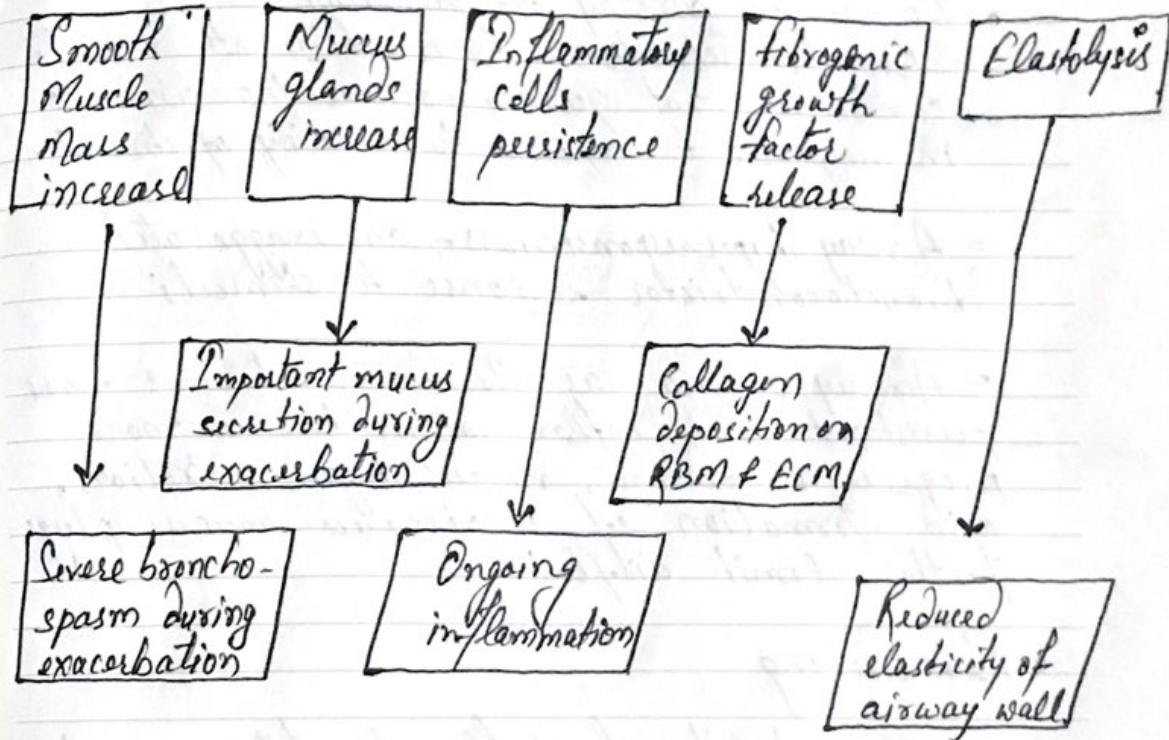 Smooth
Muscle
Mass
increase
Mucus
glands
increase
Inflammatory
cells
persistence
fibrogenic
growth
factor
release
Elastolysis
Important mucus
secretion during
exacerbation
Collagen
deposition on
RBM & ECM
Severe broncho-
spasm during
exacerbation
Ongoing
inflammation
Reduced
elasticity of
airway wall